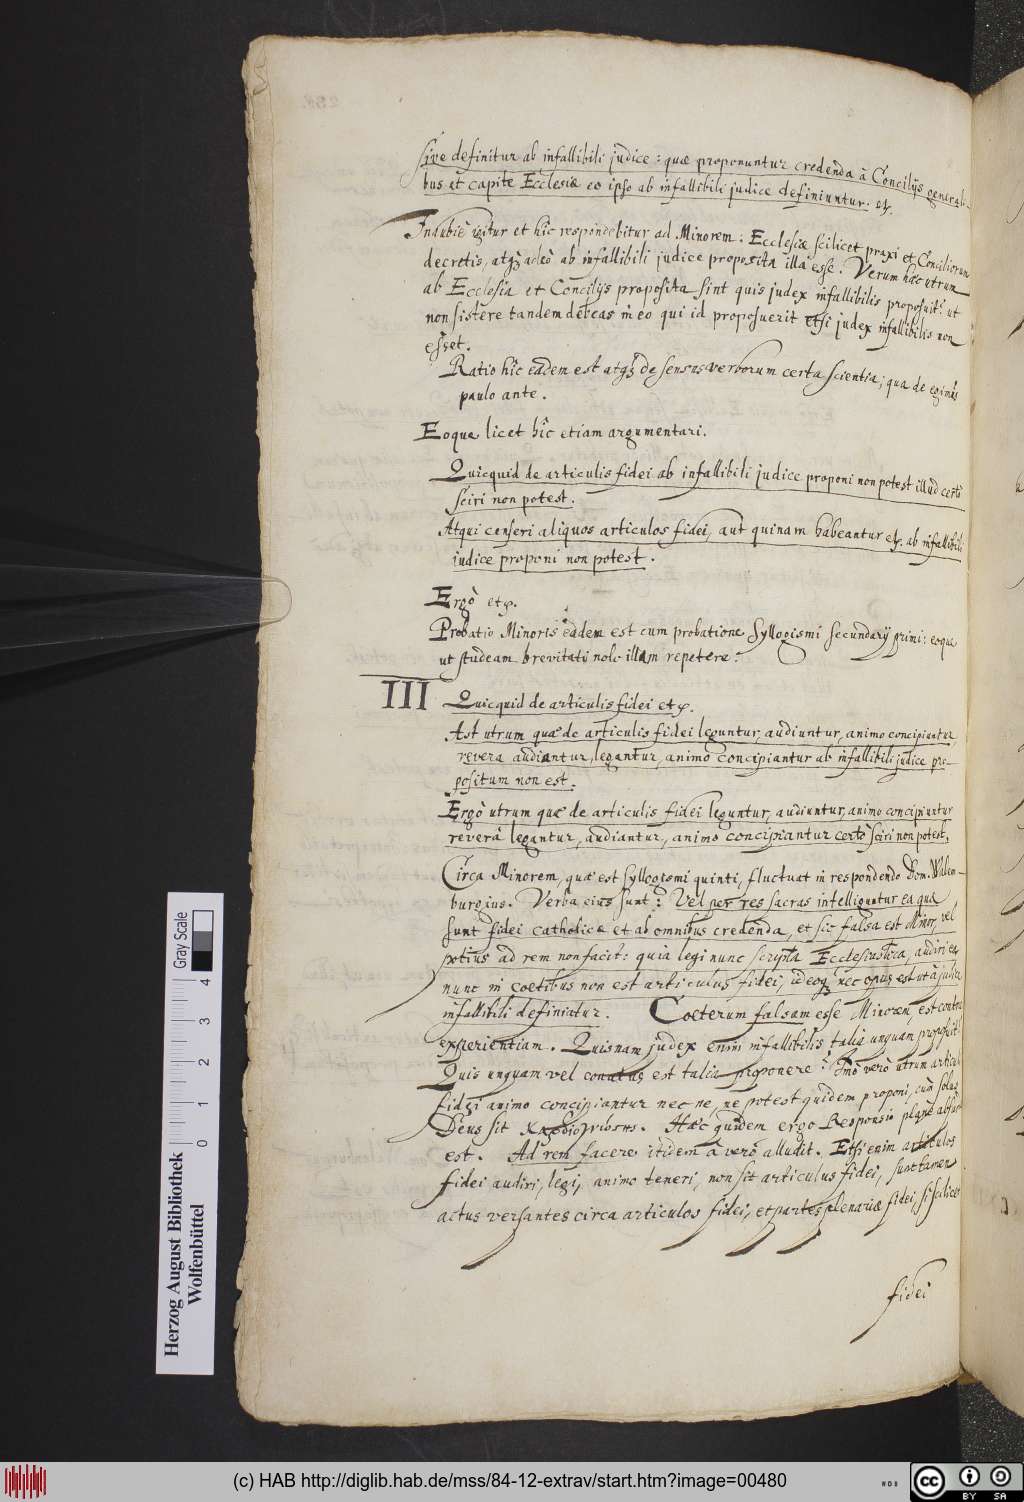 sive definitur ab infallibili judice: quæ proponuntur credenda à Concilijs generali-
bus et capite Ecclesiæ eo ipso ab infallibili judice definiuntur. etc.
Indubiè igitur et hîc respondebitur ad Minorem: Ecclesiæ scilicet praxi et Conciliorum
decretis, atq; adeò ab infallibili judice proposita illa esse. Verum hæc utrum
ab Ecclesia et Concilijs proposita sint quis judex infallibilis proposuit? ut
non sistere tandem debeas in eo qui id proposuerit etsi judex infallibilis non
esset.
Ratio hîc eadem est atq; de sensus verborum certa scientia; qua de egimus
paulo ante.
Eoque licet hîc etiam argumentari.
Quicquid de articulis fidei ab infallibili judice proponi non potest illud certò
sciri non potest.
Atqui conseri aliquos articulos fidei, aut quinam habeantur etc. ab infallibili
judice proponi non potest.
Ergò etc.
Probatio Minoris eadem est cum probatione Syllogismi secundarij primi: eoque
ut studeam brevitati nolo illam repetere.
III Quicquid de articulis fidei etc.
Ast utrum quæ de articulis fidei leguntur, audiuntur, animo concipiuntur,
revera audiantur, legantur, animo concipiantur ab infallibili judice pro-
positum non est.
Ergò utrum quæ de articulis fidei leguntur, audiuntur, animo concipiuntur
reverâ legantur, audiantur, animo concipiantur certò sciri non potest.
Circa Minorem, quæ est syllogismi quinti, fluctuat in respondendo Dom. Walem-
burgius. Verba eius sunt: Vel per res sacras intelliguntur ea quæ
sunt fidei catholicæ et ab omnibus credenda, et sic falsa est Minor, vel
potius ad rem non facit: quia legi nunc scripta Ecclesiastica, audiri ea
nunc in coetibus non est articulus fidei, ideoq; nec opus est ut à judice
infallibili definiatur. Coeterum falsam esse Minorem, est contra
experientiam. Quisnam judex enim infallibilis talia unquam proposuit?
Quis unquam vel conatus est talia proponere? Imò verò utrum articuli
fidei animo concipiantur nec ne, ne potest quidem proponi, cum solus
Deus sit καρδιογνώστης. Hæc quidem ergo Responsio planè absurda
est. Ad rem facere itidem à verò alludit. Etsi enim articulos
fidei audiri, legi, animo teneri, non sit articulus fidei, sunt tamen
actus versantes circa articulos fidei, et partes plenariæ fidei, si scilicet
fidei
Herzog August Bibliothek
Wolfenbüttel
0 1 2 3 4 Gray Scale
(c) HAB http://diglib.hab.de/mss/84-12-extrav/start.htm?image=00480
cc BY SA